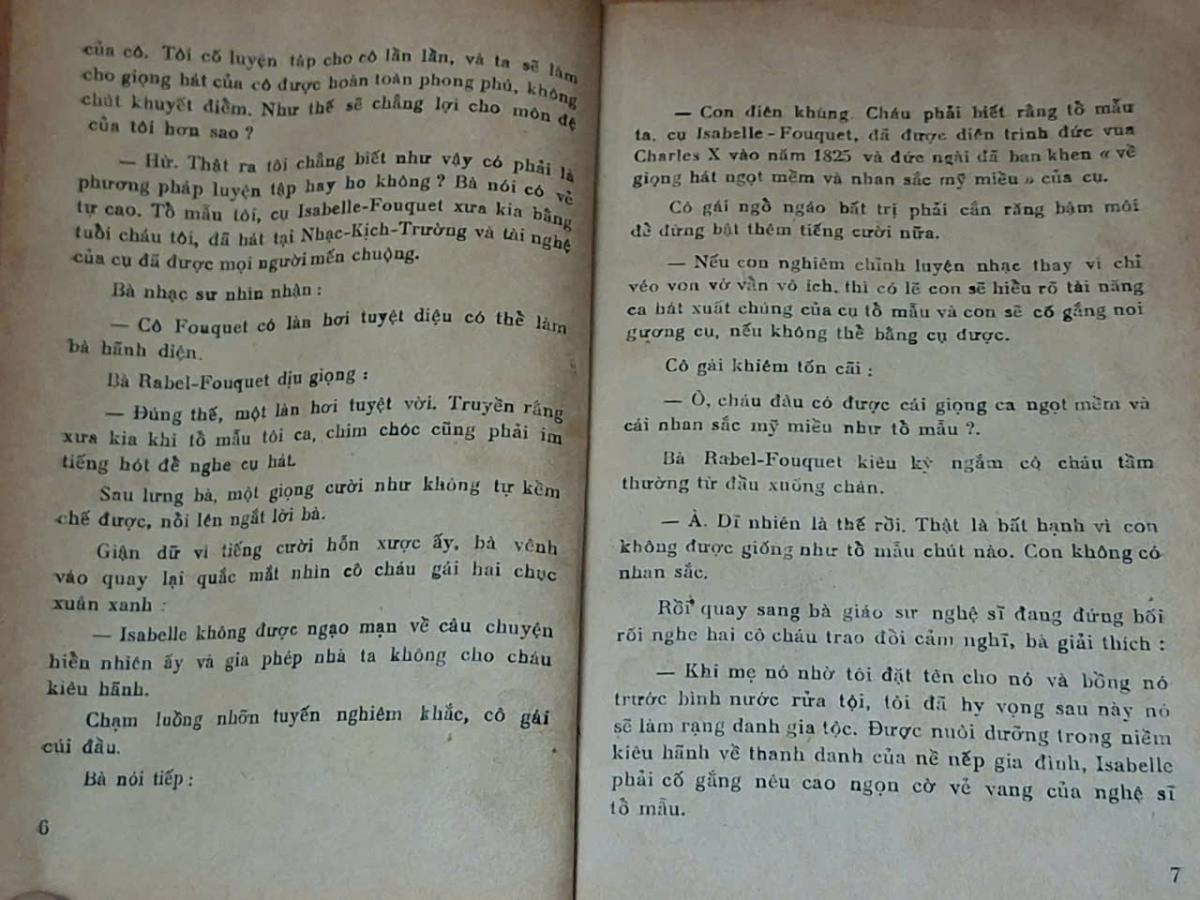 của cô. Tôi cố luyện tập cho cô lần lần, và ta sẽ làm
cho giọng hát của cô được hoàn toàn phong phú, không
chút khuyết điểm. Như thế sẽ chẳng lợi cho môn đệ
của tôi hơn sao ?
— Hừ. Thật ra tôi chẳng biết như vậy có phải là
phương pháp luyện tập hay ho không ? Bà nói có vẻ
tự cao. Tổ mẫu tôi, cụ Isabelle-Fouquet xưa kia bằng
tuổi cháu tôi, đã hát tại Nhạc-Kịch-Trường và tài nghệ
của cụ đã được mọi người mến chuộng.
Bà nhạc sư nhìn nhận :
— Cô Fouquet có làn hơi tuyệt diệu có thể làm
bà hãnh diện.
Bà Rabel-Fouquet dịu giọng :
— Đúng thế, một làn hơi tuyệt vời. Truyền rằng
xưa kia khi tổ mẫu tôi ca, chim chóc cũng phải im
tiếng hót để nghe cụ hát.
Sau lưng bà, một giọng cười như không tự kềm
chế được, nổi lên ngắt lời bà.
Giận dữ vì tiếng cười hỗn xược ấy, bà vênh
váo quay lại quắc mắt nhìn cô cháu gái hai chục
xuân xanh :
— Isabelle không được ngạo mạn về câu chuyện
hiển nhiên ấy và gia phép nhà ta không cho cháu
kiêu hãnh.
Chạm luồng nhỡn tuyến nghiêm khắc, cô gái
cúi đầu.
Bà nói tiếp :
6
— Con điên khùng. Cháu phải biết rằng tổ mẫu
ta, cụ Isabelle-Fouquet, đã được diện trình đức vua
Charles X vào năm 1825 và đức ngài đã ban khen « về
giọng hát ngọt mềm và nhan sắc mỹ miều » của cụ.
Cô gái ngổ ngáo bất trị phải cắn răng bậm môi
để đừng bật thêm tiếng cười nữa.
— Nếu con nghiêm chỉnh luyện nhạc thay vì chỉ
véo von vớ vẩn vô ích, thì có lẽ con sẽ hiểu rõ tài năng
ca hát xuất chúng của cụ tổ mẫu và con sẽ cố gắng noi
gương cụ, nếu không thể bằng cụ được.
Cô gái khiêm tốn cãi :
— Ồ, cháu đâu có được cái giọng ca ngọt mềm và
cái nhan sắc mỹ miều như tổ mẫu ?.
Bà Rabel-Fouquet kiêu kỳ ngắm cô cháu tầm
thường từ đầu xuống chân.
— À. Dĩ nhiên là thế rồi. Thật là bất hạnh vì con
không được giống như tổ mẫu chút nào. Con không có
nhan sắc.
Rồi quay sang bà giáo sư nghệ sĩ đang đứng bối
rối nghe hai cô cháu trao đổi cảm nghĩ, bà giải thích :
— Khi mẹ nó nhờ tôi đặt tên cho nó và bồng nó
trước bình nước rửa tội, tôi đã hy vọng sau này nó
sẽ làm rạng danh gia tộc. Được nuôi dưỡng trong niềm
kiêu hãnh về thanh danh của nề nếp gia đình, Isabelle
phải cố gắng nêu cao ngọn cờ vẻ vang của nghệ sĩ
tổ mẫu.
7